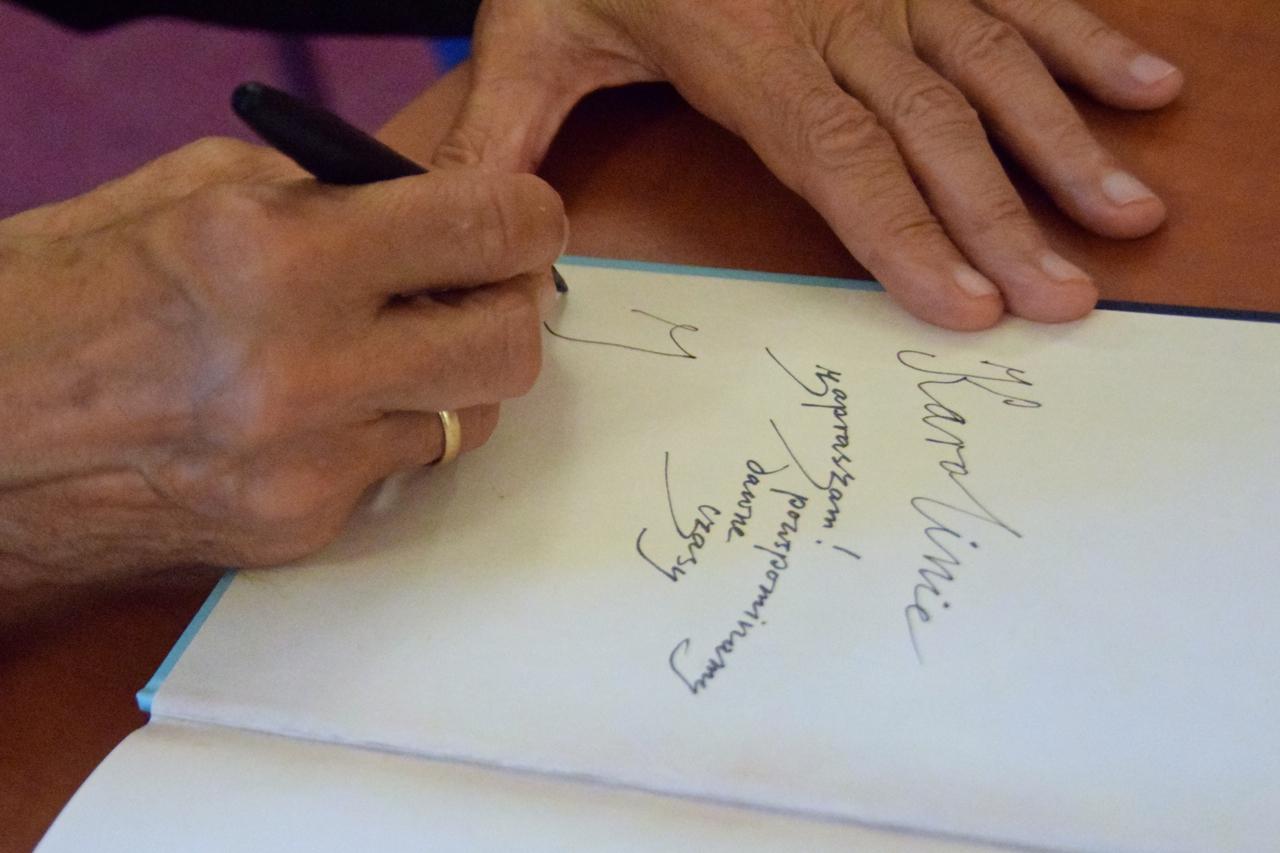 Karolinie
Zapraszam!
powspominamy
dawne
czasy